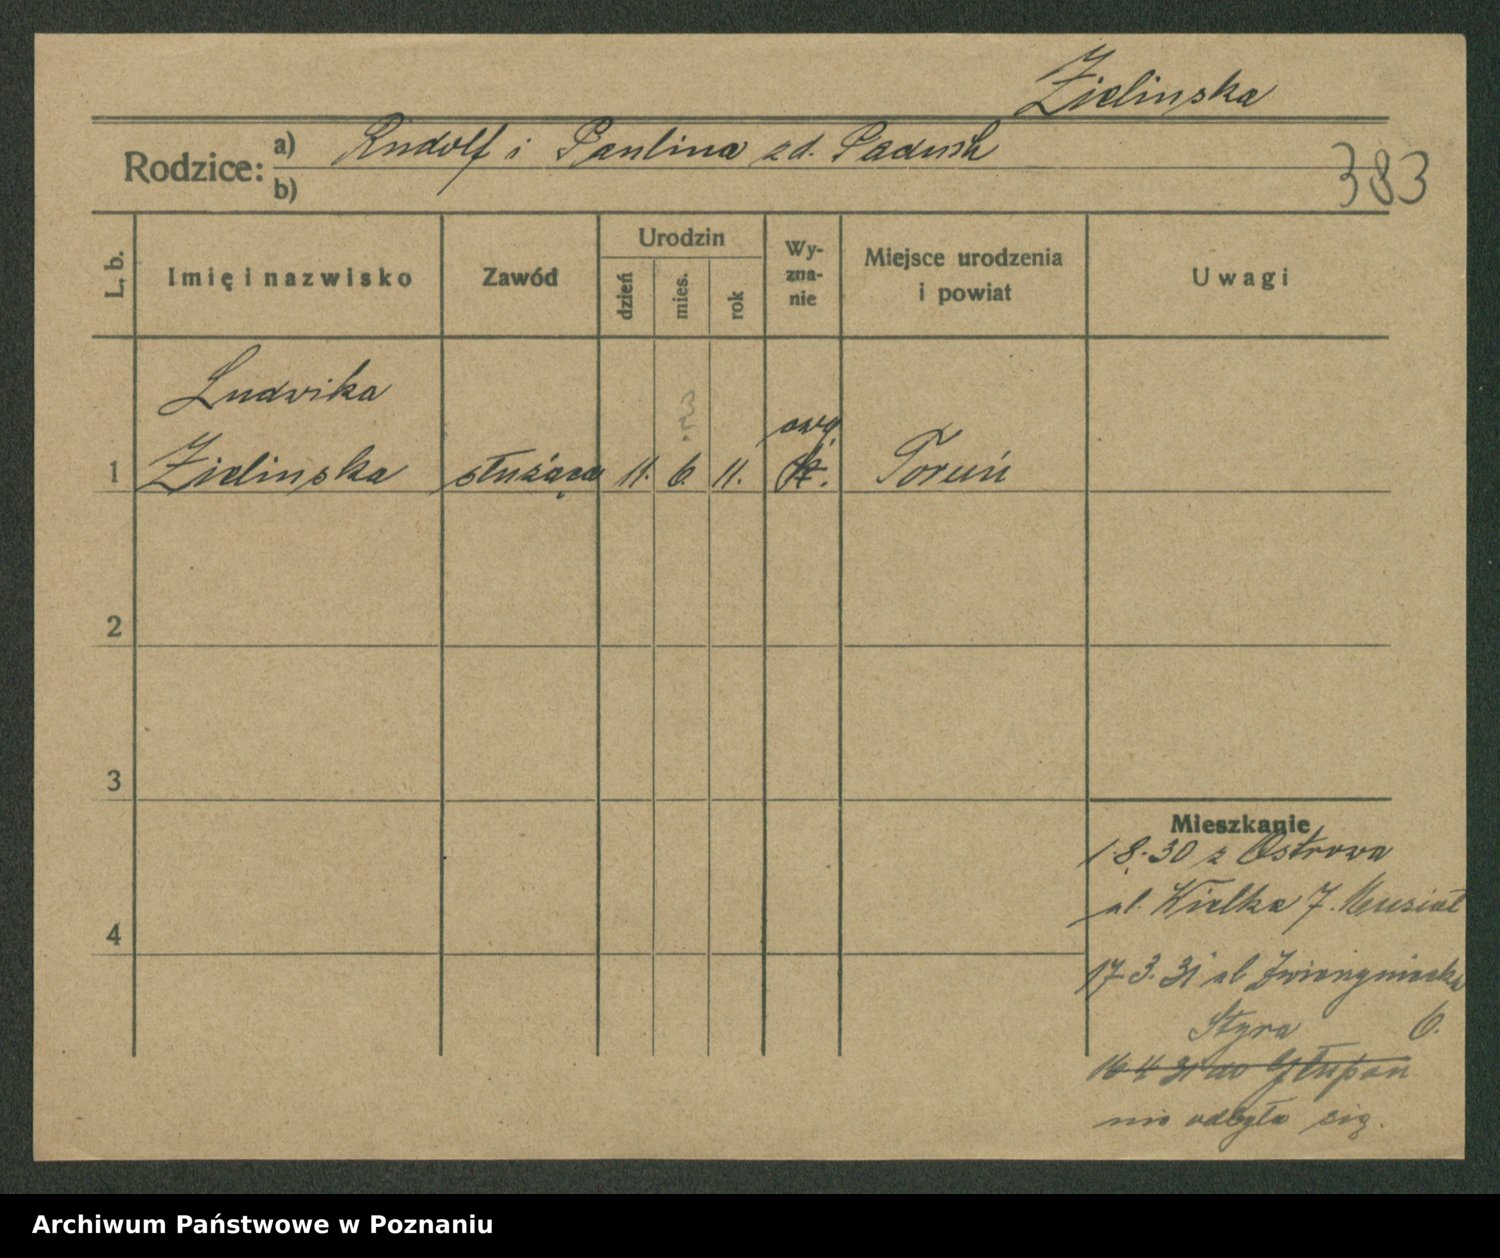 Zielinska
Rodzice: a) Rudolf i Paulina zd. Padush
b)
383
L. b.
Imię i nazwisko
Zawód
Urodzin
dzień
mies.
rok
Wy-
zna-
nie
Miejsce urodzenia
i powiat
Uwagi
Ludwika
ewg
1 Zielinska służąca 11. 6. 11. k. Toruń
2
3
4
Mieszkanie
1.8.30 z Ostrowa
ul. Wielka 7. Musiał
17.3.31 ul Zwierzyniecka
Styra 6.
16 4 31 do
nie odbyła się.
Archiwum Państwowe w Poznaniu